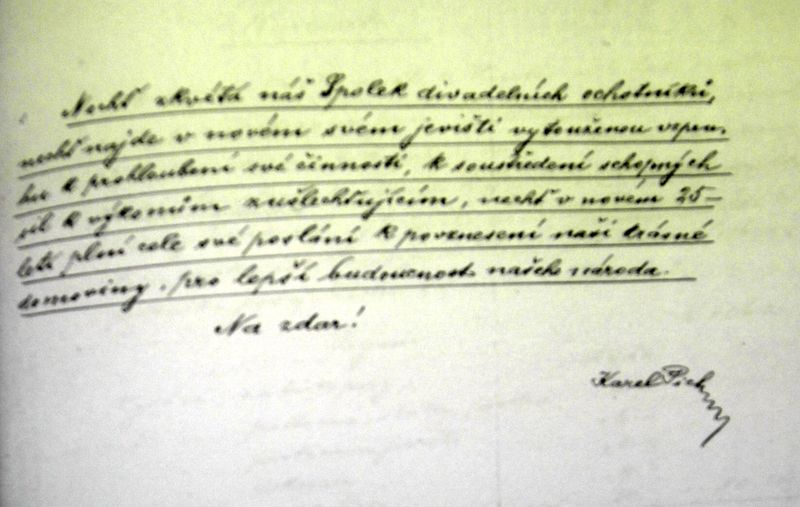 Nechť zkvétá náš Spolek divadelních ochotníků,
nechť najde v novém svém jevišti vytouženou vzpru-
hu k prohloubení své činnosti, k soustředení schopných
sil k výkonům zušlechťujícím, nechť v novém 25-
letí plní cele své poslání k povznesení naší krásné
domoviny, pro lepší budoucnost našeho národa.
Na zdar!
Karel Pich